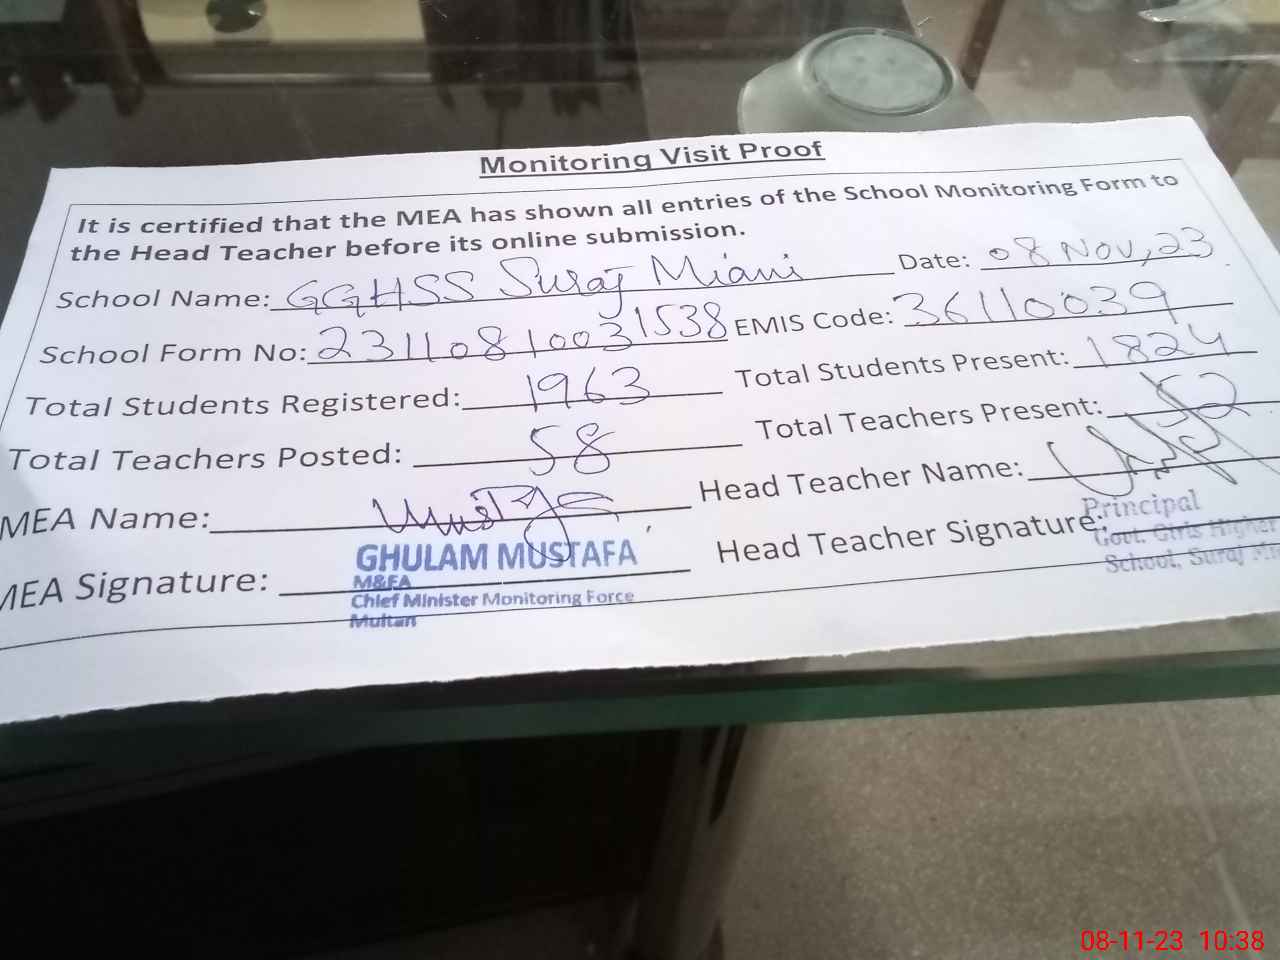 Monitoring Visit Proof
It is certified that the MEA has shown all entries of the School Monitoring Form to
the Head Teacher before its online submission.
School Name: GGHSS Suraj Miani Date: 08 Nov, 23
School Form No: 23110810031538 EMIS Code: 36110039
Total Students Registered: 1963 Total Students Present: 1824
Total Teachers Posted: 58 Total Teachers Present: 52
MEA Name: Head Teacher Name:
MEA Signature: Head Teacher Signature:
GHULAM MUSTAFA
M&EA
Chief Minister Monitoring Force
Multan
Principal
Govt. Girls Higher
School, Suraj
08-11-23 10:38